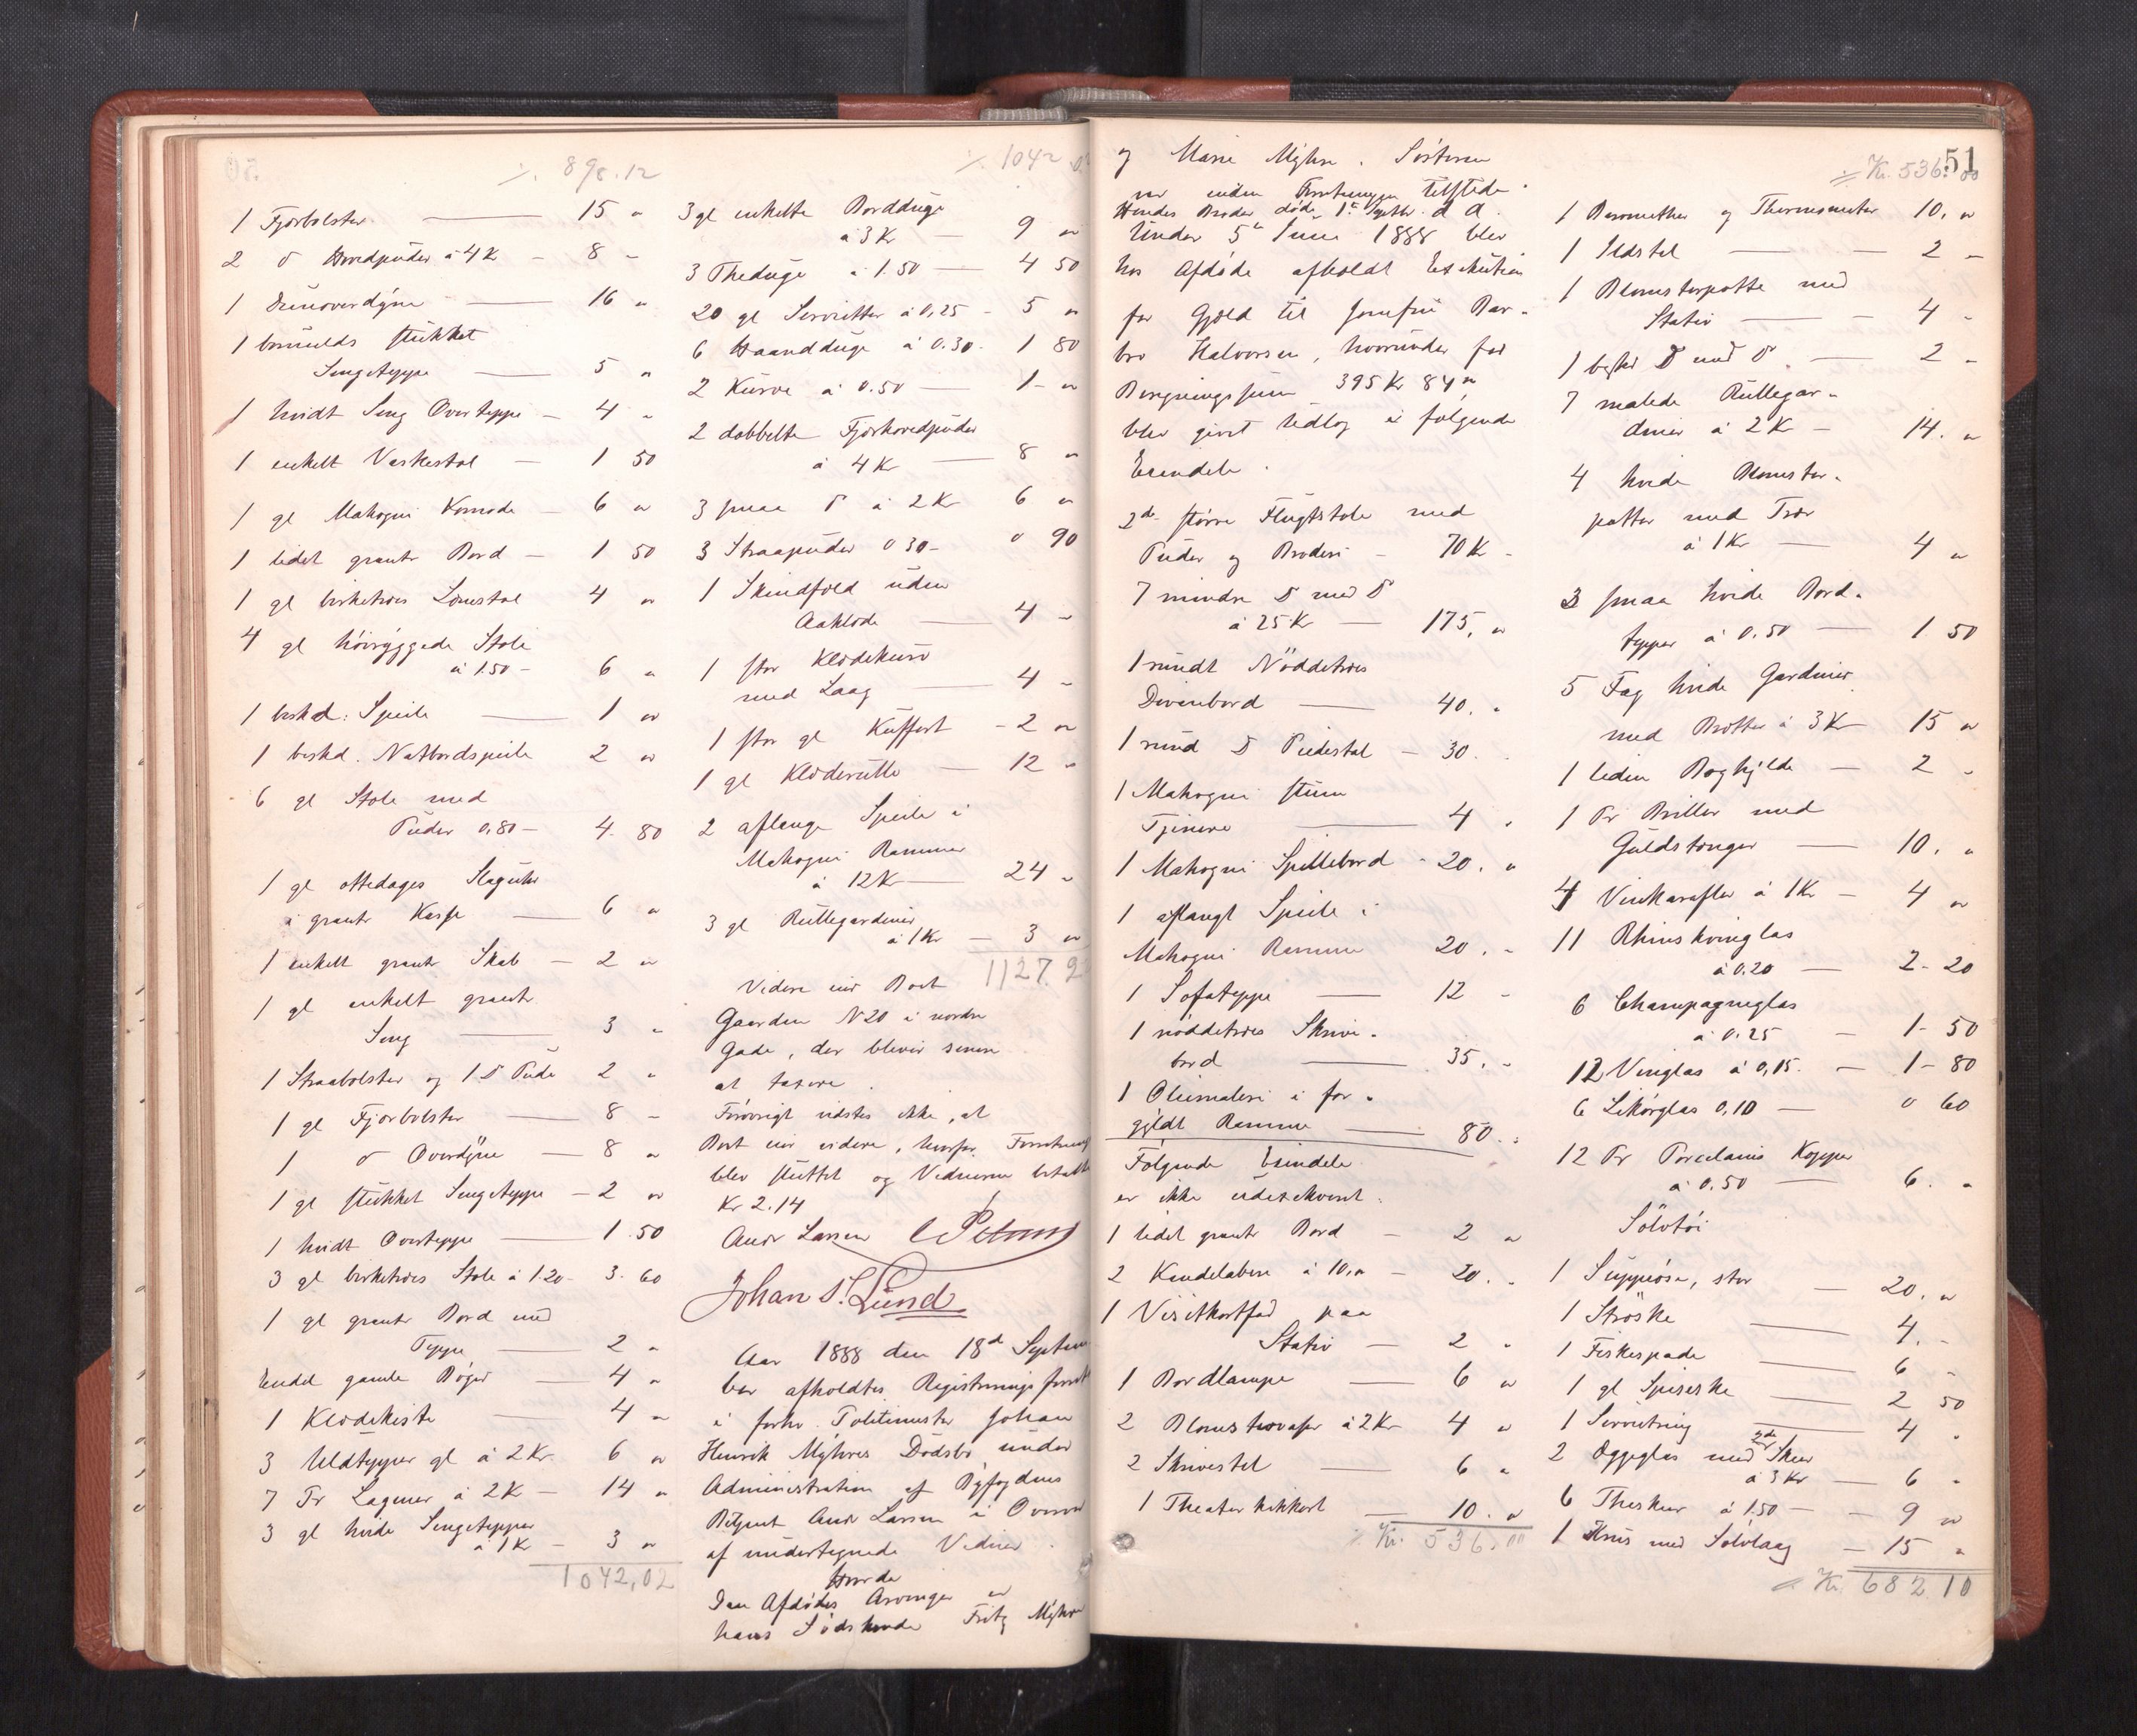 ÷ 898.12
1 Fjærbolster — 15 "
2 do Hovedpuder à 4 K - 8 -
1 Dunoverdyne — 16 "
1 bomulds stukket
Sengeteppe — 5 "
1 hvidt Seng Overteppe - 4 "
1 enkelt Vaskestol — 1 50
1 gl Mahogni Komode - 6 "
1 lidet graat Bord — 1 50
1 gl birketræs Lænestol 4 "
4 gl høiryggede Stole
à 1.50 - 6 "
1 beskd. Speile — 1 "
1 beskd. Natbordspeile 2 "
6 gl Stole med
Puder 0.80 - 4. 80
1 gl ottedages Slaguhr
i graat Kasse — 6 "
1 enkelt graat Skab - 2 "
1 gl enkelt graat
Seng — 3 "
1 Straabolster og 1 do Pude 2 "
1 gl Fjærbolster — 8 -
1 do Overdyne — 8 "
1 gl stukket Sengeteppe - 2 "
1 hvidt Overteppe — 1.50
3 gl birketræs Stole à 1.20 - 3.60
1 gl graat Bord med
Teppe — 2 "
Endel gamle Bøger — 4 "
1 Klædekiste — 4 "
3 Uldtepper gl à 2 Kr. 6 "
7 Pr Lagener à 2 K — 14 "
3 gl hvide Sengetepper
à 1 K - 3 "
1042,02
÷ 1042
3 gl enkelte Bordduge
à 3 K — 9 "
3 Theduge à 1.50 — 4 50
20 gl Servietter à 0,25 - 5 "
6 Haandduge à 0.30 - 1 80
2 Kurve à 0.50 — 1 - "
2 dobbelte Fjærhovedpuder
à 4 K — 8 "
3 smaa do à 2 K 6 "
3 Straapuder 0 30 - 0 90
1 Skindfeld uden
Aaklæde — 4 -
1 stor Klædekurv
med Laag — 4 -
1 stor gl Kuffert - 2 "
1 gl Klæderulle — 12 "
2 aflange Speile i
Mahogni Rammer
à 12 K — 24 "
3 gl Rullegardiner
à 1 Kr — 3 "
1127.2
Videre eier Boet
Gaarden N 20 i nordre
Gade, der bliver senere
at taxere.
Forøvrigt vidstes ikke, at
Boet eier videre, hvorfor
blev sluttet og Vidnerne
Kr 2.14
Andr Larsen
Johan S. Lund
Aar 1888 den 18de
blev afholdtes Registrerings
i forhv. Politimester Johan
Henrik Myhres Dødsbo under
Administration af Byfogdens
Betjent Andr Larsen i Overvær
af undertegnede Vidner.
Hvorda
Den Afdødes Arvinger er
hans Sødskende Fritz Myhre
51
÷ Kr. 536.00
og Marie Myhre. Søsteren
var under Forretningen tilstede.
Hendes Broder døde 1ste Septbr. d A.
Under 5te Juni 1888 blev
hos Afdøde afholdt Exekution
for Gjæld til Jomfru Bar-
bro Halvorsen, hvorunder for
Beregningssum 395 Kr 84 "
blev givet Udlæg i følgende
Eiendele.
2de større Flugtstole med
Puder og Broderi — 70 K -
7 mindre do med do
à 25 K — 175, "
1 rundt Nøddetræs
Divanbord — 40. "
1 rund do Piedestal — 30.
1 Mahogni stum
Tjener — 4 "
1 Mahogni Spillebord - 20. "
1 aflangt Speile i
Mahogni Ramme 20. -
1 Sofateppe — 12 -
1 nøddetræs Skrive-
bord — 35. -
1 Oliemaleri i for-
gyldt Ramme — 80.
Følgende Eiendele
er ikke udexekveret.
1 lidet graat Bord — 2 "
2 Kandelabere à 10,00 — 20. "
1 Visitkortfad paa
Stativ — 2 "
1 Bordlampe — 6 "
2 Blomstervaser à 2 Kr 4 "
2 Skrivestel — 6 "
1 Theaterkikkert — 10. "
÷ Kr. 536.00
1 Baromether og Thermometer 10. "
1 Ildstel — 2 -
1 Blomsterpotte med
Stativ — 4 -
1 beskd do med do — 2 -
7 malede Rullegar-
diner à 2 K — 14. "
4 hvide Blomster-
potter med Trær
à 1 Kr — 4 "
3 smaa hvide Bord-
tepper à 0.50 — 1 50
5 Fag hvide Gardiner
med Bretter à 3 K 15 "
1 liden Boghylde — 2 -
1 Pr Briller med
Guldstænger — 10. "
4 Vinkarafler à 1 Kr — 4 "
11 Rhinskvinglas
à 0.20 — 2 - 20
6 Champagneglas
à 0.25 — 1 - 50
12 Vinglas à 0,15. — 1 - 80
6 Likørglas 0,10 — 0 60
12 Pr Porcelains Kopper
à 0.50 — 6. "
Sølvtøi
1 Suppeøse, stor — 20. "
1 Strøske — 4. -
1 Fiskespade — 6 -
1 gl Spiseske — 2 50
1 Servietring — 4 "
2 Æggeglas med 2de Skeer
à 3 Kr — 6 "
6 Theskeer à 1.50 — 9 "
1 Krus med Sølvlaag — 15 "
÷ Kr. 682 10